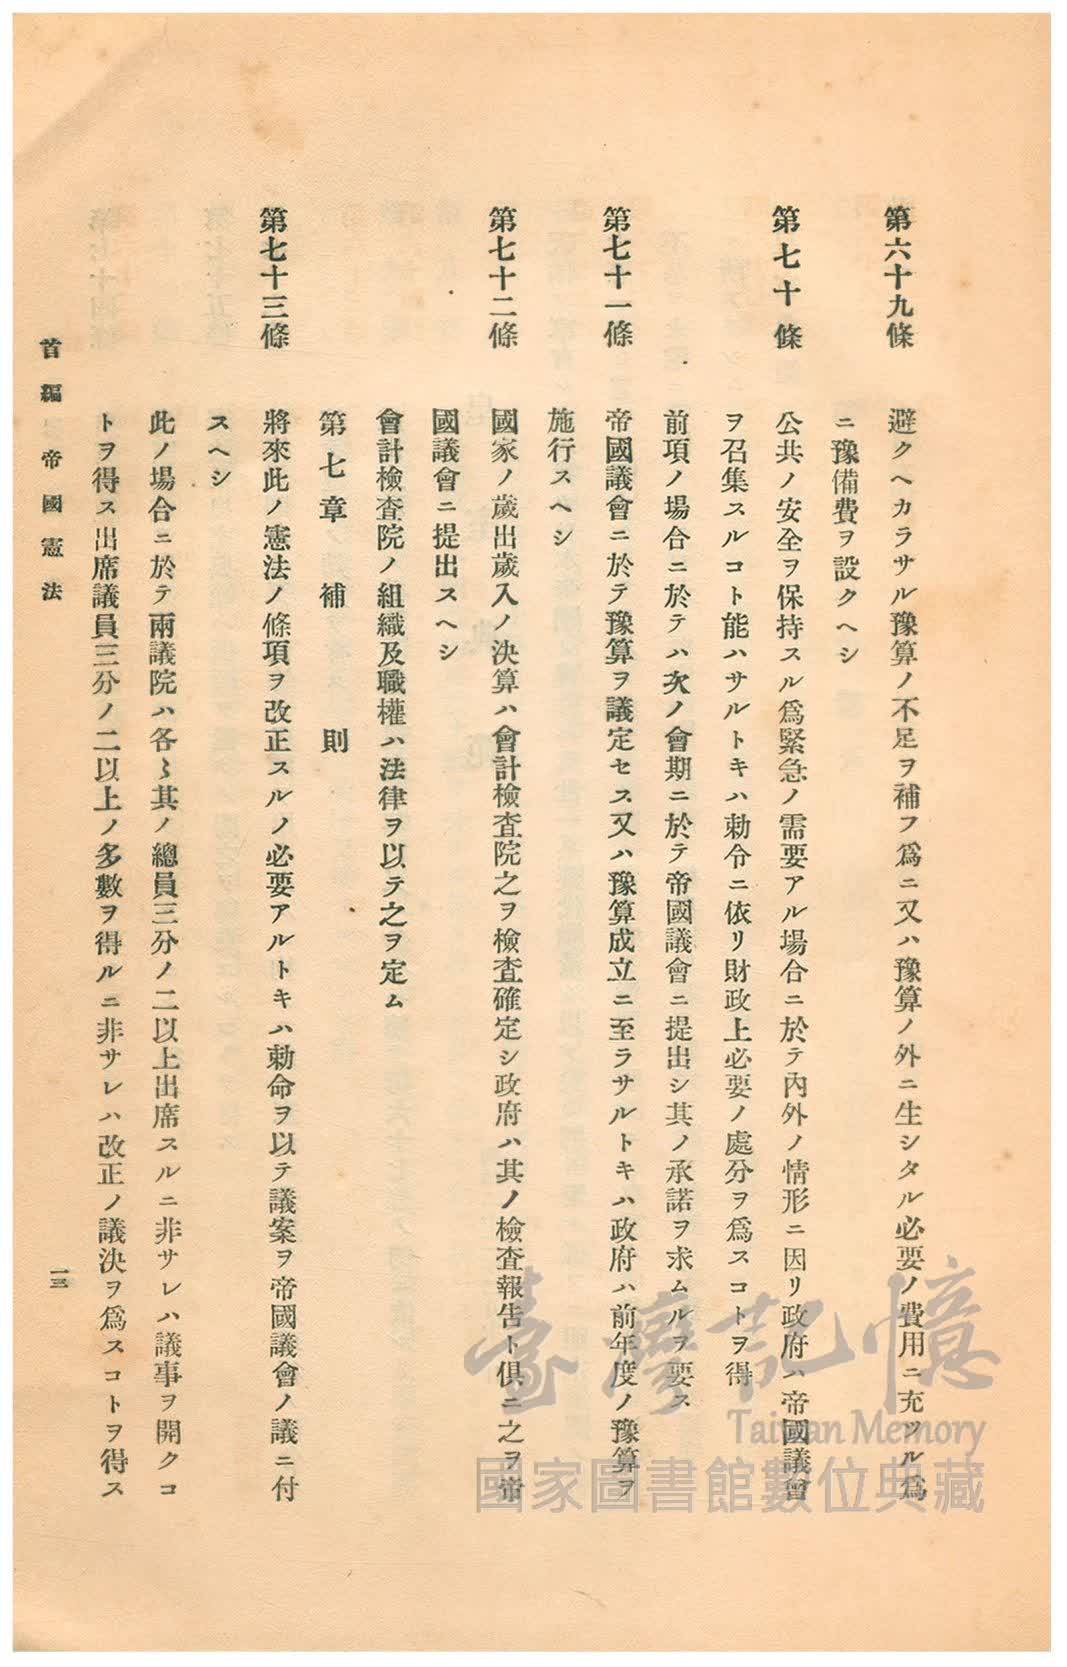 第六十九條　避クヘカラサル豫算ノ不足ヲ補フ爲ニ又ハ豫算ノ外ニ生シタル必要ノ費用ニ充ツル爲
ニ豫備費ヲ設クヘシ
第七十條　公共ノ安全ヲ保持スル爲緊急ノ需要アル場合ニ於テ內外ノ情形ニ因リ政府ハ帝國議會
ヲ召集スルコト能ハサルトキハ勅令ニ依リ財政上必要ノ處分ヲ爲スコトヲ得
前項ノ場合ニ於テハ次ノ會期ニ於テ帝國議會ニ提出シ其ノ承諾ヲ求ムルヲ要ス
第七十一條　帝國議會ニ於テ豫算ヲ議定セス又ハ豫算成立ニ至ラサルトキハ政府ハ前年度ノ豫算ヲ
施行スヘシ
第七十二條　國家ノ歲出歲入ノ決算ハ會計檢査院之ヲ檢査確定シ政府ハ其ノ檢査報告ト俱ニ之ヲ帝
國議會ニ提出スヘシ
會計檢査院ノ組織及職權ハ法律ヲ以テ之ヲ定ム
第七章　補則
第七十三條　將來此ノ憲法ノ條項ヲ改正スルノ必要アルトキハ勅命ヲ以テ議案ヲ帝國議會ノ議ニ付
スヘシ
此ノ場合ニ於テ兩議院ハ各〻其ノ總員三分ノ二以上出席スルニ非サレハ議事ヲ開クコ
トヲ得ス出席議員三分ノ二以上ノ多數ヲ得ルニ非サレハ改正ノ議決ヲ爲スコトヲ得ス
首編　帝國憲法
一三
臺灣記憶
Taiwan Memory
國家圖書館數位典藏